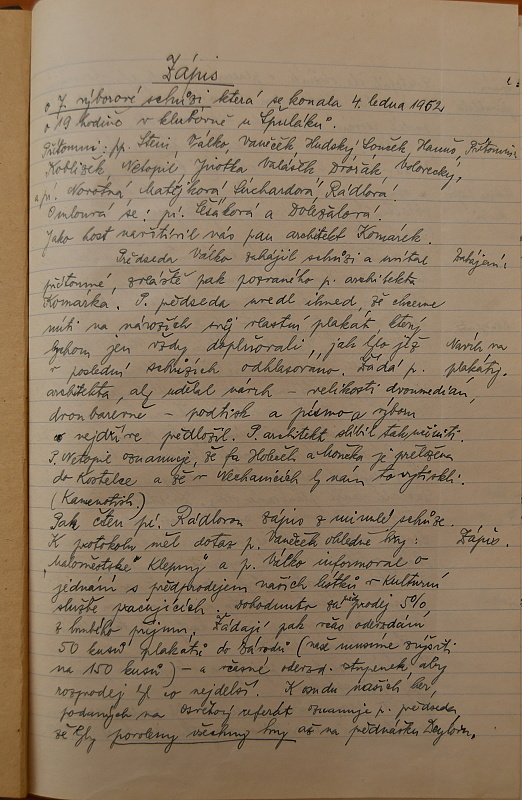 Zápis
o 7. výborové schůzi, která se konala 4. ledna 1962
o 19 hodině v klubovně u Špuláků.
Přítomni: pp. Stein, Válko, Vaněček, Hudský, Souček, Hanuš, Přítomni:
Koblížek, Netopil, Jirotka, Valášek, Dvořák, Volorecký,
a pí. Novotná, Matějková, Suchardová, Rádlová.
Omlouvá se: pí. a Doležalová.
Jako host navštívil nás pan architekt Komárek.
Předseda Válko zahájil schůzi a uvítal Zahájení:
přítomné, zvláště pak pozvaného p. architekta
Komárka. P. předseda uvedl ihned, že chceme
míti na nárožích svůj vlastní plakát, který
bychom jen vždy doplňovali, jak bylo již Návrh na
v poslední schůzích odhlasováno. Žádá p. plakáty.
architekta, aby udělal návrh – velikosti dvoumedián,
dvoubarevně – podtisk a písmo a výboru
nejdříve předložil. P. architekt slíbil tak učiniti.
P. Netopil oznamuje, že fa Holeček a je přeložena
do Kostelce a že v Nechanicích by nám to vytiskli.
(Kamenotisk.)
Pak čten pí. Rádlovou zápis z minulé schůze.
K protokolu měl dotaz p. Vaněček ohledně hry: Zápis.
"Maloměstské Klepny" a p. Válko informoval o
jednání s předprodejem našich lístků v Kulturní
službě pracujících. Dohodnuto za prodej 5%
z hrubého příjmu. Žádají pak včas odevzdání
50 kusů plakátů do závodů (než musíme zvýšiti
na 150 kusů) – a včasné odevzd. vstupenek, aby
rozprodej byl co nejdelší. K osudu našich her,
podaných na osvětový referát oznamuje p. předseda
že byly povoleny všechny hry až na přednášku Deylovu.